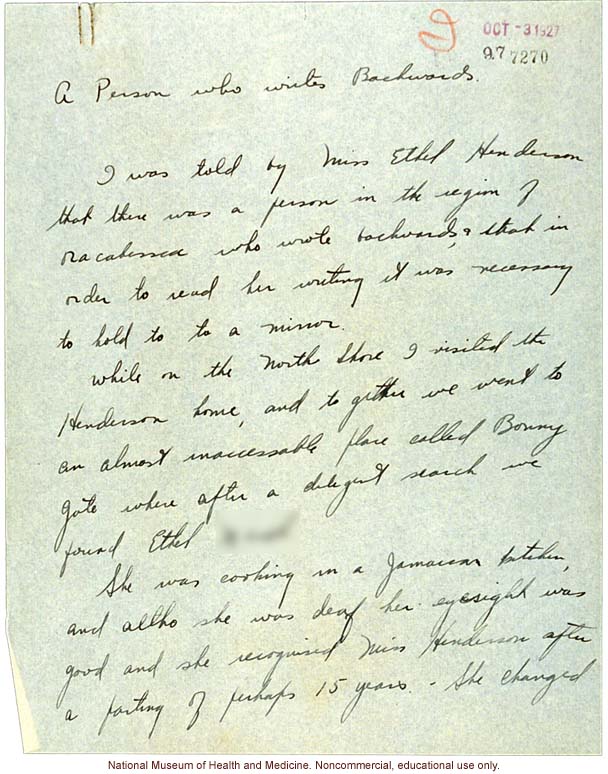 OCT -3 1927
97 7270
A Person who writes Backwards.
I was told by Miss Ethel Henderson
that there was a person in the region of
Oracabessca who wrote backwards, & that in
order to read her writing it was necessary
to hold to to a mirror.
While on the North Shore I visited the
Henderson home, and to gether we went to
an almost inaccessable place called Bonny
Gate where after a deligent search we
found Ethel
She was cooking in a Jamaican kitchen,
and altho she was deaf her eyesight was
good and she recognised Miss Henderson after
a parting of perhaps 15 years. - She changed
National Museum of Health and Medicine. Noncommercial, educational use only.